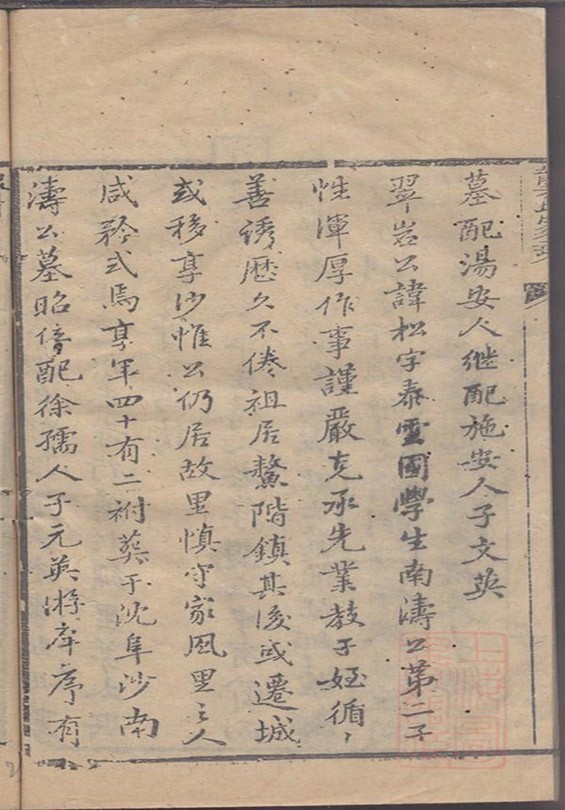 墓配湯安人继配施安人子文英
翠岩公諱松字泰雲國學生南濤公第二子
性渾厚作事謹嚴克承先業教子姪循〻
善誘歷久不倦祖居鰲階鎮其後或遷城
或移享沙惟公仍居故里慎守家風里之人
咸矜式焉享年四十有二祔葬于沈阜沙南
濤公墓昭傍配徐孺人子元英游庠序有